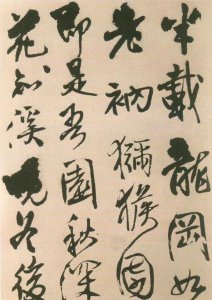 半載龍岡如
老衲獼猴園
即是吾園秋深
花知溪晚冬後